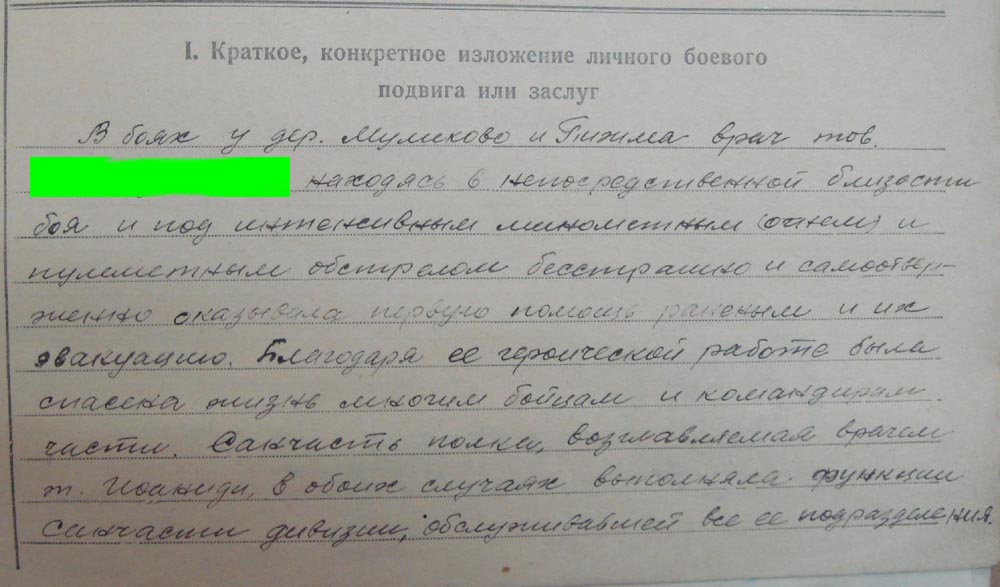 I. Краткое, конкретное изложение личного боевого
подвига или заслуг
В боях у дер. Муликово и Пижма врач тов.
находясь в непосредственной близости
боя и под интенсивным минометным (огнем) и
пулеметным обстрелом бесстрашно и самоотвер-
женно оказывала первую помощь раненым и их
эвакуацию. Благодаря ее героической работе была
спасена жизнь многим бойцам и командирам
части. Санчасть полка, возглавляемая врачем
т. Иоаниди, в обоих случаях выполняла функции
Санчасти дивизии, обслуживавшей все ее подразделения.